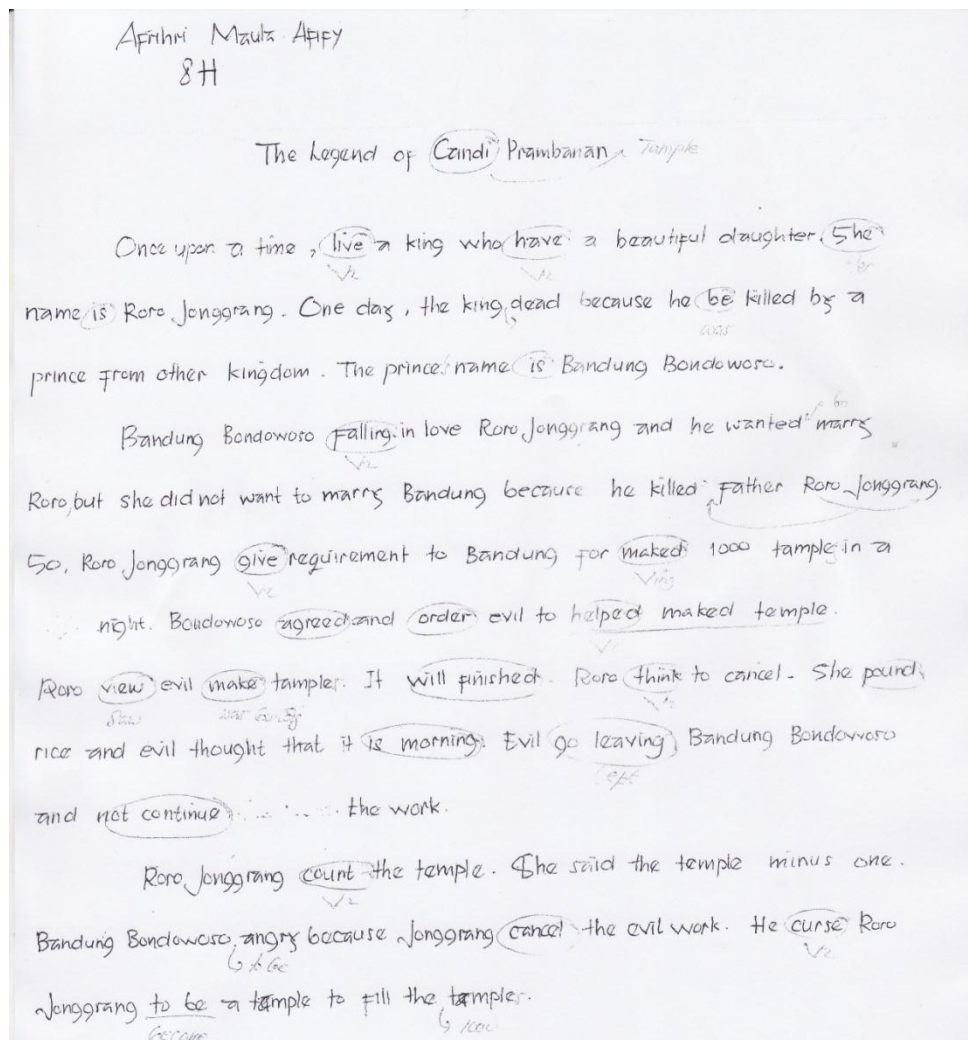 Afrihri Maula Afify
8H
The Legend of Candi Prambanan Tample
Once upon a time, live a king who have a beautiful daughter. She
V2 V2 Her
name is Roro Jonggrang. One day, the king dead because he be killed by a
was
prince from other kingdom. The prince name is Bandung Bondowoso.
to
Bandung Bondowoso falling in love Roro Jonggrang and he wanted marry
V2
Roro, but she did not want to marry Bandung because he killed father Roro Jonggrang.
So, Roro Jonggrang give requirement to Bandung for maked 1000 tample in a
V2 Ving
night. Boudowoso agreed and order evil to helped maked temple.
V1
Roro view evil make tample. It will finished. Roro think to cancel. She pound
Saw V2
rice and evil thought that it is morning. Evil go leaving Bandung Bondowoso
left
and not continue the work.
Roro Jonggrang count the temple. She said the temple minus one.
V2
Bandung Bondowoso angry because Jonggrang cancel the evil work. He curse Roro
to be V2
Jonggrang to be a temple to fill the temple.
become